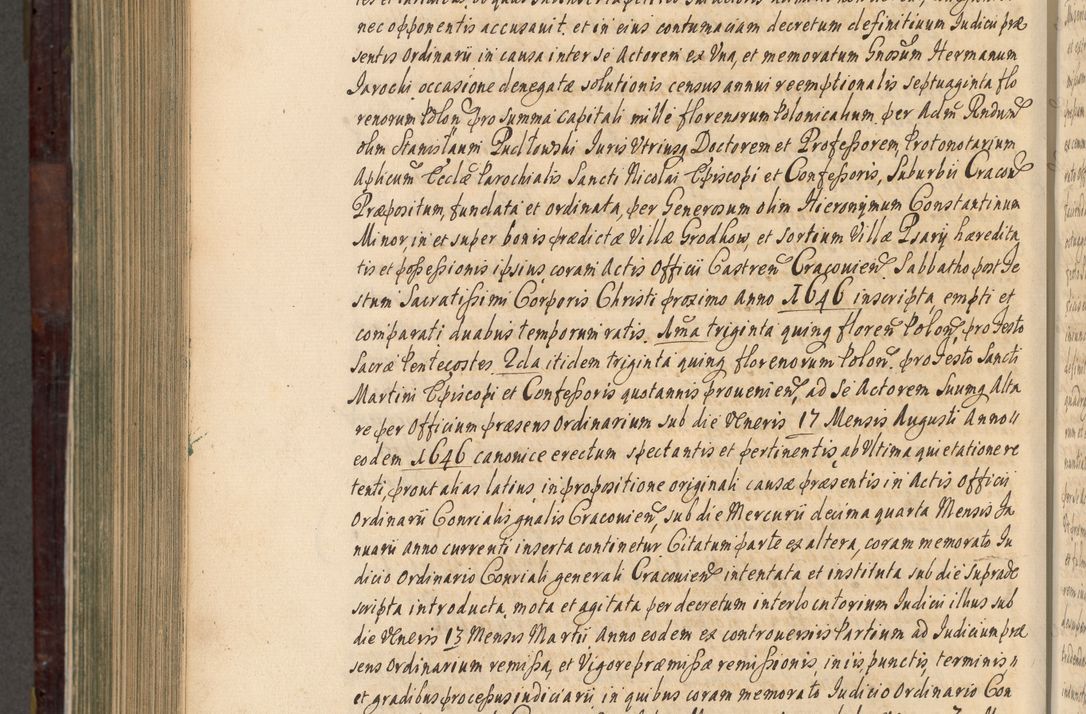 nec opponentis accusavit. et in eius contumaciam decretum definitiuum Iudicii præ
sentis Ordinarii in causa inter se Actorem ex Vna, et memoratum Gnosum Hermanum
Jarochi occasione denegatæ solutionis census annui reemptionalis septuaginta flo
renorum Polon pro summa capitali mille florenorum Polonicalium per Adm Rndum
olim Stanislaum Pudłowski Iuris Vtriusq Doctorem et Professorem, Protonotarium
Aplicum Ecclæ Parochialis Sancti Nicolai Episcopi et Confessoris, Suburbii Cracou
Præpositum, fundata et ordinata, per Generosum olim Hieronymum Constantinum
Minor, in et super bonis prædictæ Villæ Grodkow, et sortium Villæ Psary hæredita
tis et possessionis ipsius coram Actis Officii Castren Cracouien Sabbatho post Fe
stum Sacratissimi Corporis Christi proximo Anno 1646 inscripta, empti et
comparati duabus temporum ratis. Ama triginta quinq floren Polon, pro Festo
Sacræ Pentecostes 2da itidem triginta quinq florenorum Polon. pro Festo Sancti
Martini Episcopi et Confessoris quotannis prouenien, ad se Actorem suumq Alta
re per Officium præsens Ordinarium sub die Veneris 17 Mensis Augusti Anno
eodem 1646 canonice erectum spectantis et pertinentis, ab Vltima quietatione re
tenti, prout alias latius in propositione originali causæ præsentis in Actis Officii
Ordinarii Conrialis gnalis Cracouien, sub die Mercurii decima quarta Mensis Ja
nuarii anno currenti inserta continetur Citatum parte ex altera, coram memorato Iu
dicio Ordinario Conriali generali Cracouien intentata et instituta sub die supradc
scripta introducta, mota et agitata per decretum interlocutorium Iudicii illius sub
die Veneris 13 Mensis Martii Anno eodem ex controuersiis Partium ad Iudicium præ
sens Ordinarium remissa, et Vigore præmissæ remissionis in iis, punctis, terminis
et gradibus processus iudiciarii, in quibus coram memorato Iudicio Ordinario Con